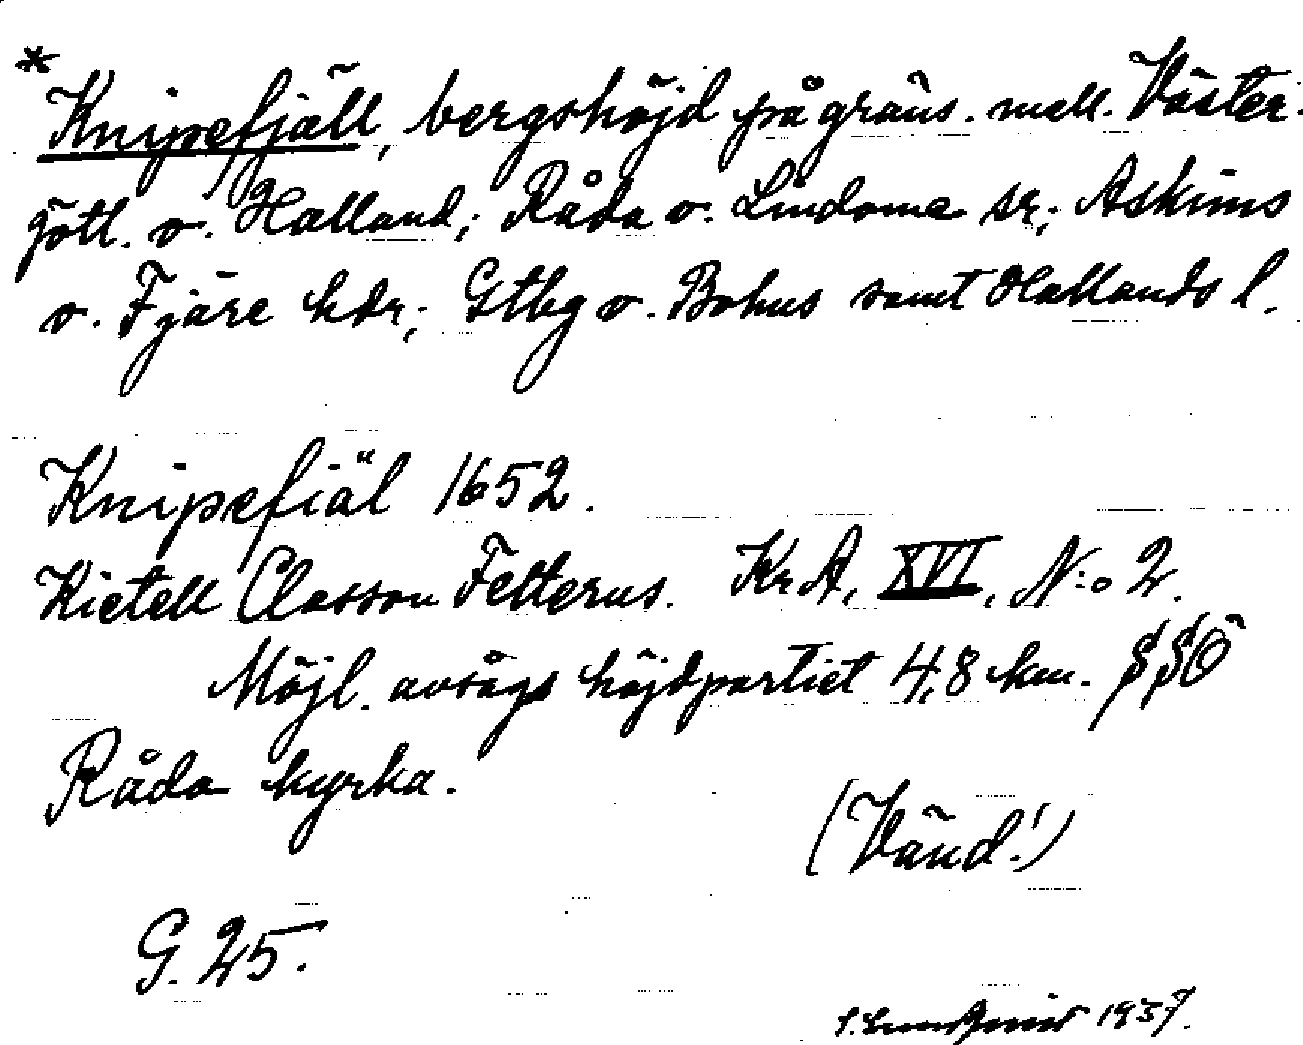 * Knipefjäll, bergshöjd på gräns. mell. Väster-
götl. o. Halland; Råda o. Lindome sr; Askims
o. Fjäre hdr; Gtbg o. Bohus samt Hallands l.
Knipefiäl 1652.
Kietell Classon Felterus. KrA, XVI, N:o 2.
Möjl. avsågs höjdpartiet 4,8 km. SSÖ
Råda kyrka.
(Vänd!)
G. 25.
1937.